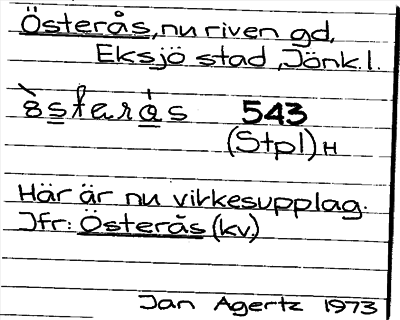 Österås, nu riven gd,
Eksjö stad, Jönk.l.
òs̲taràs 543
(Stpl) H
Här är nu virkesupplag.
Jfr: Österås (kv.)
Jan Agertz 1973